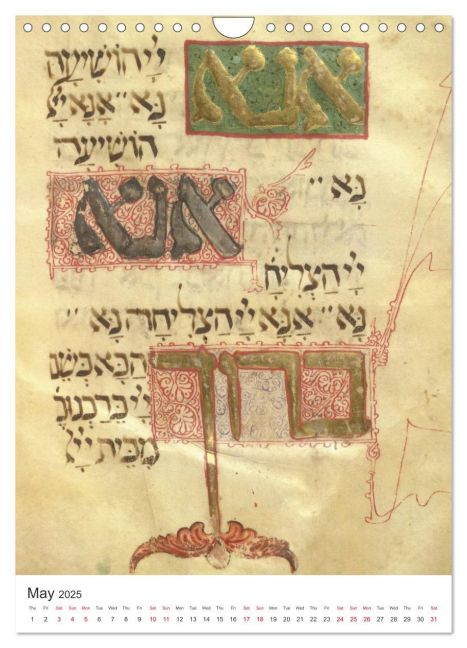 אנא
יְיָ הוֹשִׁיעָה
נָּא אָנָּא יְיָ
הוֹשִׁיעָה
נָּא
אנא
יְיָ הַצְלִיחָ
נָּא אָנָּא יְיָ הַצְלִיחָה נָּא
ברוך
הַבָּא בְּשֵׁם
יְיָ בֵּרַכְנוּכ
מִבֵּית יְיָ
May 2025
Thu Fri Sat Sun Mon Tue Wed Thu Fri Sat Sun Mon Tue Wed Thu Fri Sat Sun Mon Tue Wed Thu Fri Sat Sun Mon Tue Wed Thu Fri Sat
1 2 3 4 5 6 7 8 9 10 11 12 13 14 15 16 17 18 19 20 21 22 23 24 25 26 27 28 29 30 31